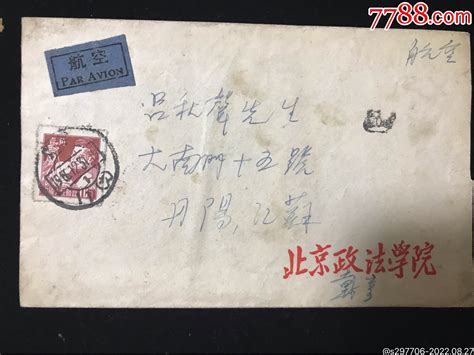 7788.com
航空
PAR AVION
航空
吕秋聲先生
大南門十五號
丹陽,江蘇
北京政法学院
@s297706-2022.08.27